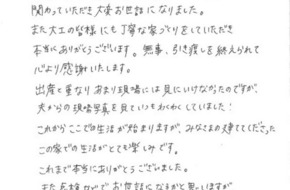 関わっていただき大変お世話になりました。
また大工の皆様にも丁寧な家づくりをしていただき
本当にありがとうございます。無事、引き渡しを終えられて
心より感謝いたします。
出産と重なりあまり現場には見にいけなかったのですが、
夫からの現場写真を見ていつもわくわくしていました!
これからここでの生活が始まりますが、みなさまの建ててくださった
この家での生活がとても楽しみです。
これまで本当にありがとうございました。
また点検などでお世話になるかと思いますが